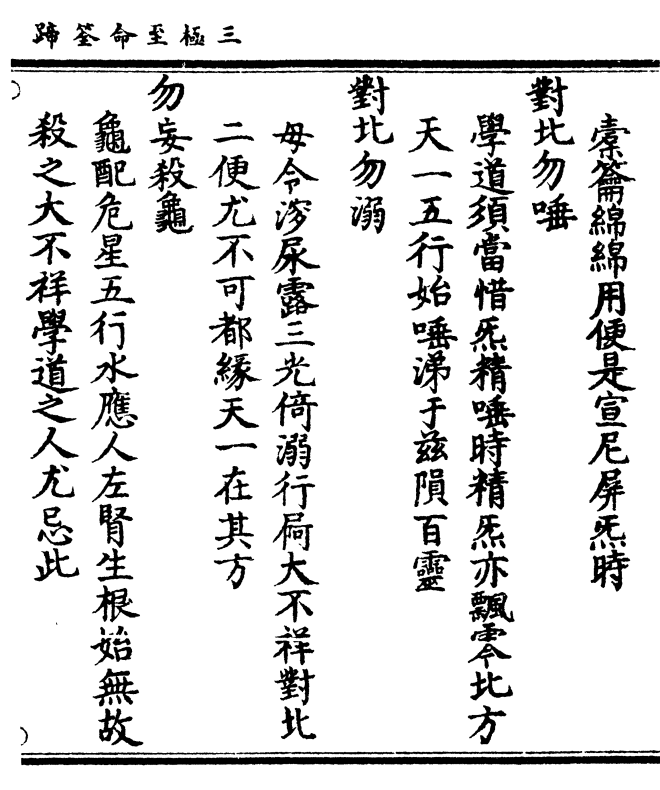 三極至命筌蹄
槖籥綿綿用便是宣尼屏炁時
對北勿唾
學道須當惜炁精唾時精炁亦飄零北方
天一五行始唾涕于茲隕百靈
對北勿溺
毋令涕尿露三光倚溺行屙大不祥對北
二便尤不可都緣天一在其方
勿妄殺龜
龜配危星五行水應人左腎生根始無故
殺之大不祥學道之人尤忌此